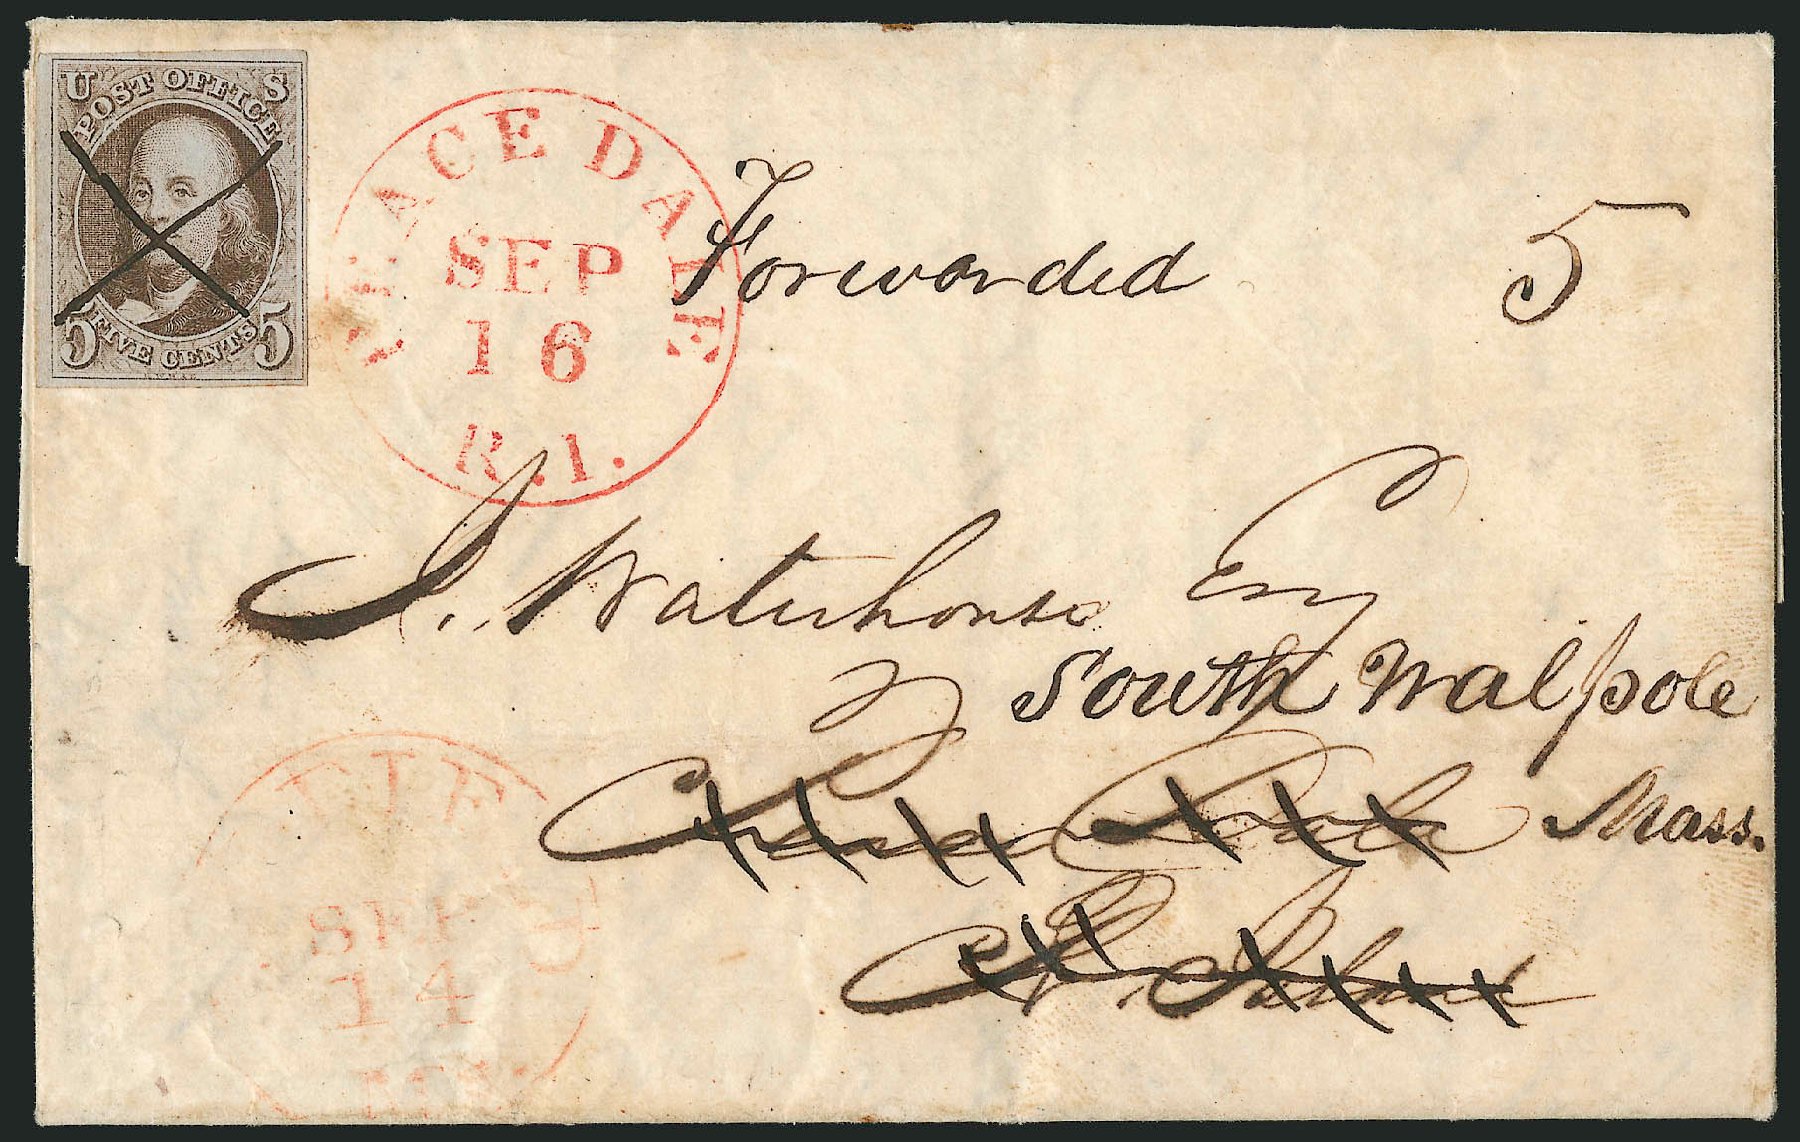 U S
POST OFFICE
5 FIVE CENTS 5
PEACE DALE
SEP
16
R.I.
Forwarded 5
J. Waterhouse Esq
South Walpole
Mass.
Peace Dale
R. Island
SEP
14